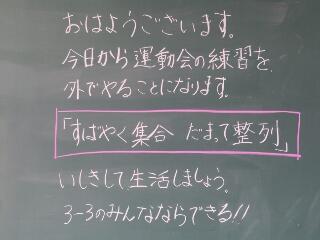 おはようございます。
今日から運動会の練習を
外でやることになります。
「すばやく集合 だまって整列」
いしきして生活しましょう。
3-3のみんなならできる!!